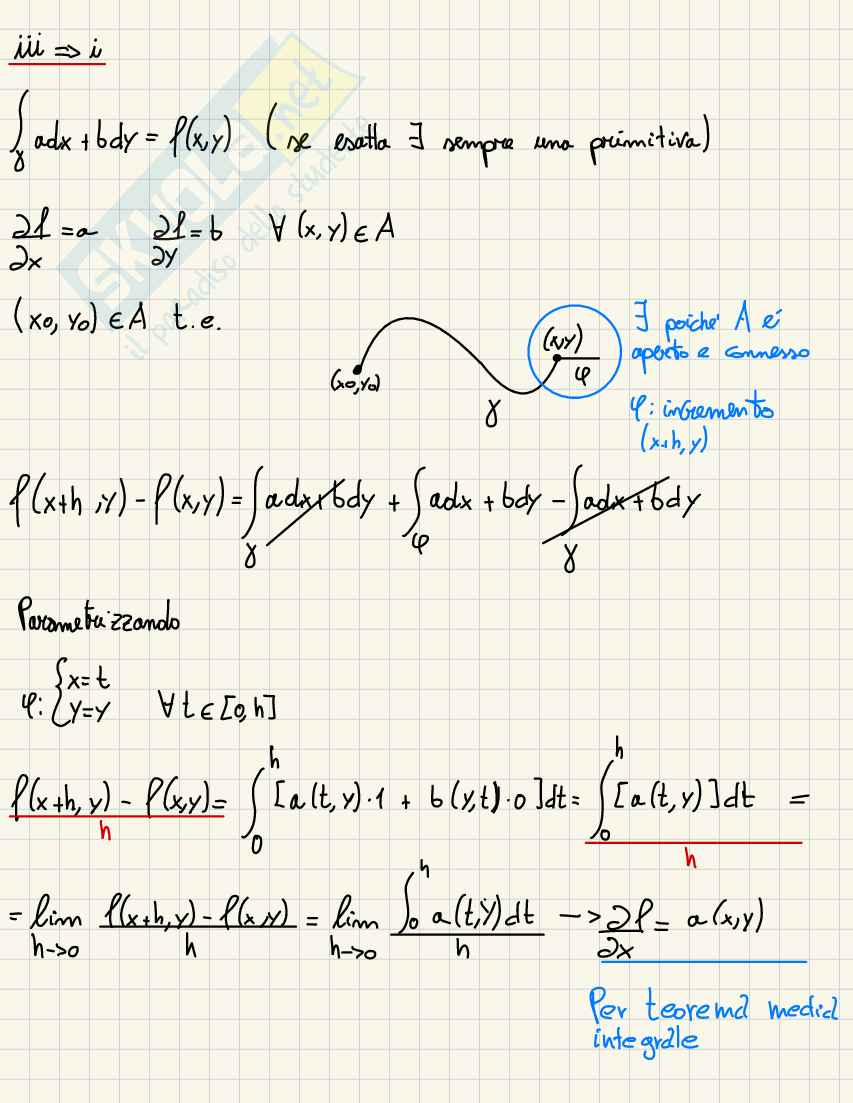 iii ⇒ i
∫γ adx + bdy = f(x,y) (se esatta ∃ sempre una primitiva)
∂f/∂x = a ∂f/∂y = b ∀ (x,y) ∈ A
(x0, y0) ∈ A t.c.
(x0,y0)
γ
(x,y)
φ
∃ poiché A é
aperto e connesso
φ: incremento
(x+h, y)
f(x+h, y) - f(x,y) = ∫γ adx + bdy + ∫φ adx + bdy - ∫γ adx + bdy
Parametrizzando
φ: { x = t
y = y ∀ t ∈ [0, h]
f(x+h, y) - f(x,y) / h = ∫0^h [a(t,y)·1 + b(y,t)·0]dt = ∫0^h [a(t,y)]dt / h =
= lim h->0 f(x+h,y) - f(x,y) / h = lim h->0 ∫0^h a(t,y)dt / h -> ∂f/∂x = a(x,y)
Per teorema media
integrale
SKUOLA.net
il paradiso dello studente